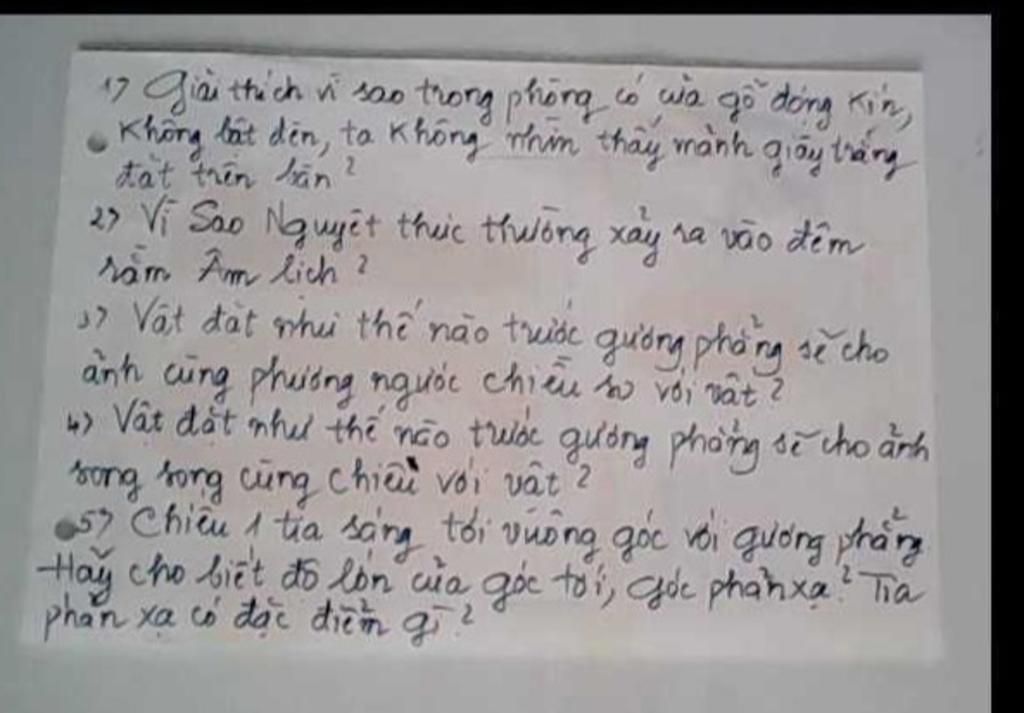 1) Giải thích vì sao trong phòng có cửa gỗ đóng kín,
Không bật đèn, ta Không nhìn thấy mảnh giấy trắng
đặt trên bàn?
2) Vì Sao Nguyệt thực thường xảy ra vào đêm
rằm Âm lịch?
3) Vật đặt như thế nào trước gương phẳng sẽ cho
ảnh cùng phương ngược chiều so với vật?
4) Vật đặt như thế nào trước gương phẳng sẽ cho ảnh
song song cùng chiều với vật?
5) Chiếu 1 tia sáng tới vuông góc với gương phẳng
Hãy cho biết độ lớn của góc tới, góc phản xạ? Tia
phản xạ có đặc điểm gì?